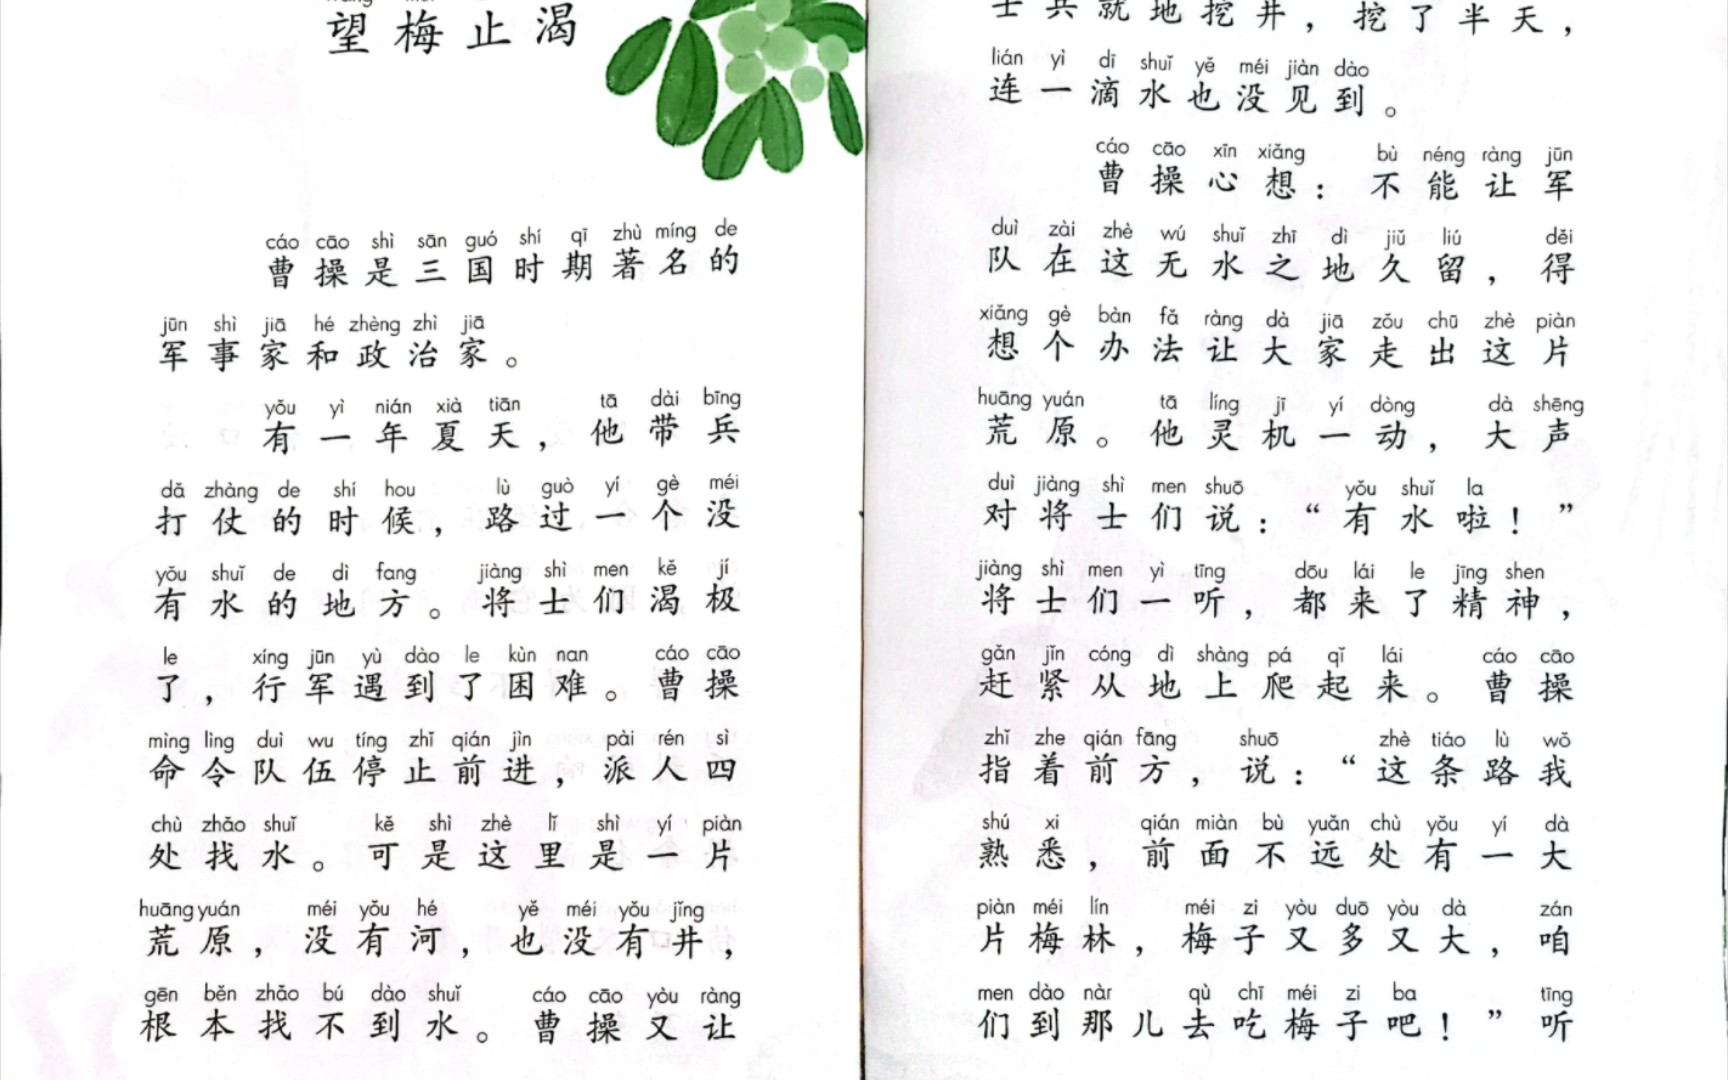 望梅止渴
cáo cāo shì sān guó shí qī zhù míng de
曹操是三国时期著名的
jūn shì jiā hé zhèng zhì jiā
军事家和政治家。
yǒu yì nián xià tiān tā dài bīng
有一年夏天，他带兵
dǎ zhàng de shí hou lù guò yí gè méi
打仗的时候，路过一个没
yǒu shuǐ de dì fang jiàng shì men kě jí
有水的地方。将士们渴极
le xíng jūn yù dào le kùn nan cáo cāo
了，行军遇到了困难。曹操
mìng lìng duì wu tíng zhǐ qián jìn pài rén sì
命令队伍停止前进，派人四
chù zhǎo shuǐ kě shì zhè lǐ shì yí piàn
处找水。可是这里是一片
huāng yuán méi yǒu hé yě méi yǒu jǐng
荒原，没有河，也没有井，
gēn běn zhǎo bú dào shuǐ cáo cāo yòu ràng
根本找不到水。曹操又让
士兵就地挖井，挖了半天，
lián yì dī shuǐ yě méi jiàn dào
连一滴水也没见到。
cáo cāo xīn xiǎng bù néng ràng jūn
曹操心想：不能让军
duì zài zhè wú shuǐ zhī dì jiǔ liú děi
队在这无水之地久留，得
xiǎng gè bàn fǎ ràng dà jiā zǒu chū zhè piàn
想个办法让大家走出这片
huāng yuán tā líng jī yí dòng dà shēng
荒原。他灵机一动，大声
duì jiàng shì men shuō yǒu shuǐ la
对将士们说：“有水啦！”
jiàng shì men yì tīng dōu lái le jīng shen
将士们一听，都来了精神，
gǎn jǐn cóng dì shàng pá qǐ lái cáo cāo
赶紧从地上爬起来。曹操
zhǐ zhe qián fāng shuō zhè tiáo lù wǒ
指着前方，说：“这条路我
shú xi qián miàn bù yuǎn chù yǒu yí dà
熟悉，前面不远处有一大
piàn méi lín méi zi yòu duō yòu dà zán
片梅林，梅子又多又大，咱
men dào nàr qù chī méi zi ba tīng
们到那儿去吃梅子吧！”听